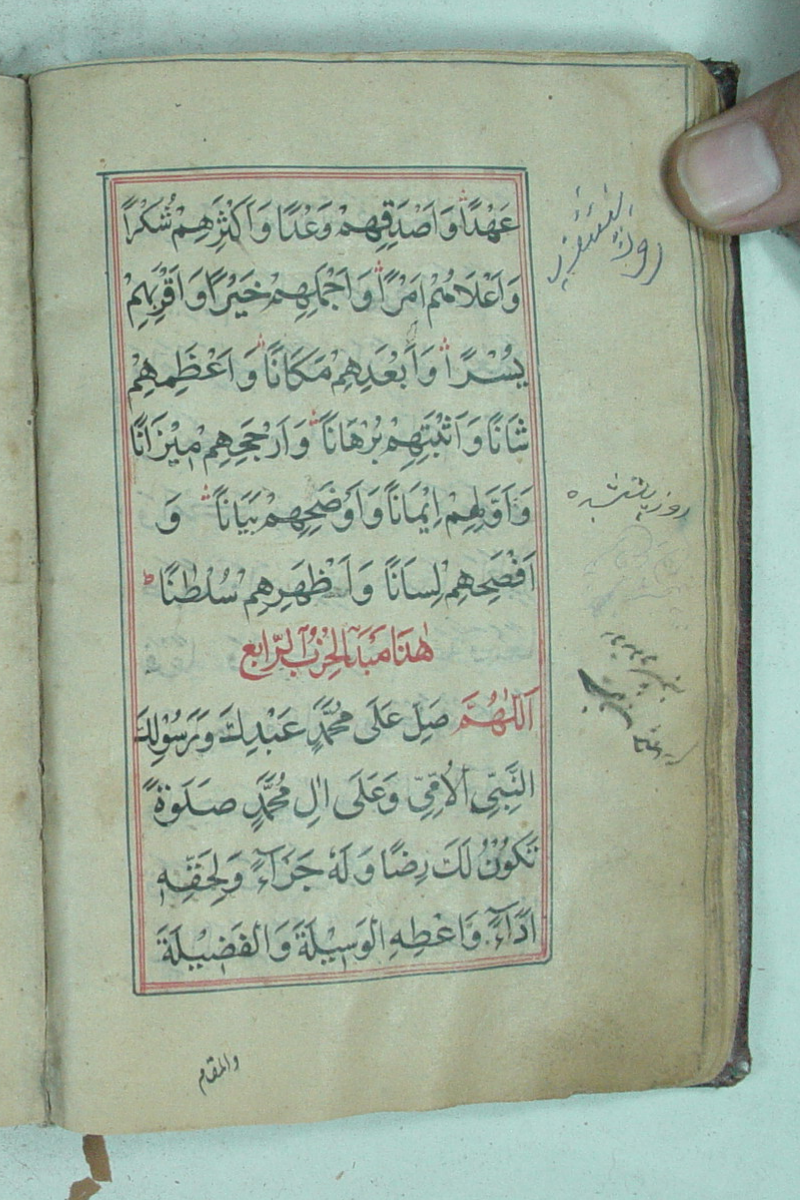 عَهْدًا وَاَصْدَقِهِمْ وَعْدًا وَاَكْثَرِهِمْ شُكْرًا
وَاَعْلَامُهُمْ اَمْرًا وَاَجْمَلِهِمْ خَيْرًا وَاَقْرَبِهِمْ
يُسْرًا وَاَبْعَدِهِمْ مَكَانًا وَاَعْظَمِهِمْ
شَانًا وَاَثْبَتِهِمْ بُرْهَانًا وَاَرْجَحِهِمْ مِيْزَانًا
وَاَوَّلِهِمْ اِيْمَانًا وَاَوْضَحِهِمْ بَيَانًا وَ
اَفْصَحِهِمْ لِسَانًا وَاَظْهَرِهِمْ سُلْطٰنًا
هٰذَا مَبْدَأُ الْحِزْبِ الرَّابِعِ
اَللّٰهُمَّ صَلِّ عَلٰى مُحَمَّدٍ عَبْدِكَ وَرَسُوْلِكَ
النَّبِيِّ الْاُمِّيِّ وَعَلٰى اٰلِ مُحَمَّدٍ صَلٰوةً
تَكُوْنُ لَكَ رِضًا وَلَهٗ جَزَآءً وَلِحَقِّهٖ
اَدَآءً وَاَعْطِهِ الْوَسِيْلَةَ وَالْفَضِيْلَةَ
والمقام
روز
روز پنجشنبه